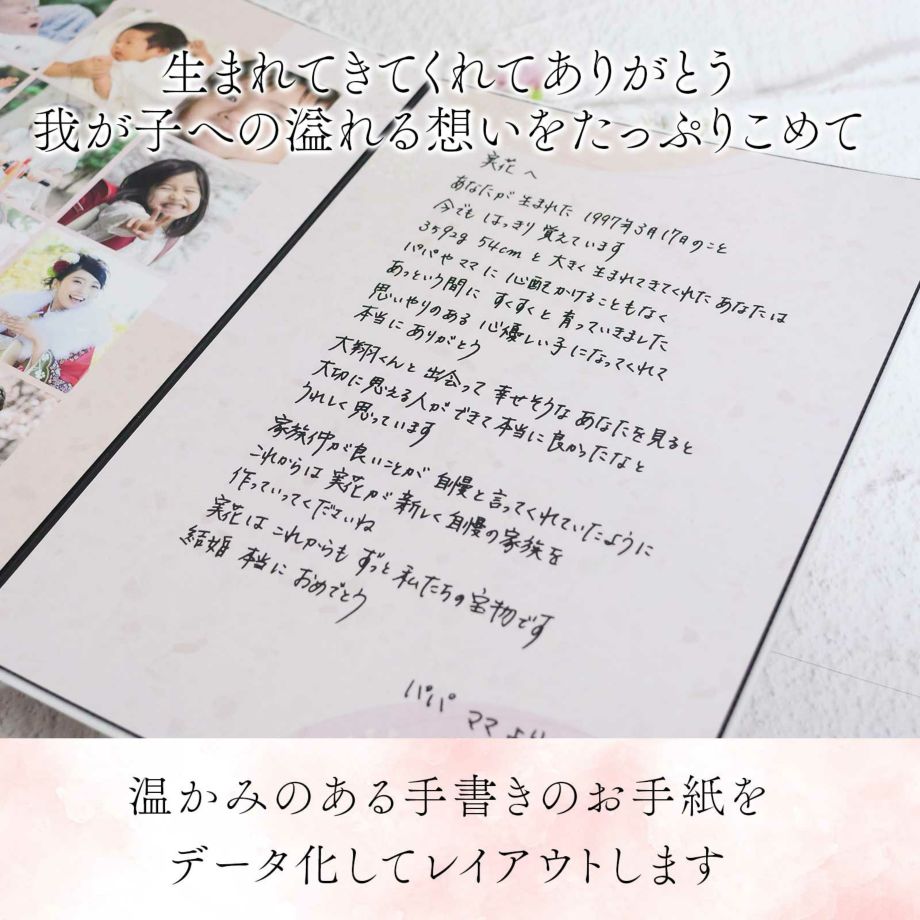 生まれてきてくれてありがとう
我が子への溢れる想いをたっぷりこめて
実花へ
あなたが生まれた 1997年3月17日のこと
今でも はっきり 覚えています
3592g 54cm と 大きく 生まれてきてくれた あなたは
パパやママに 心配かけることもなく
あっという間に すくすくと 育っていきました
思いやりのある 心優しい子になってくれて
本当に ありがとう
大翔くんと 出会って 幸せそうな あなたを見ると
大切に思える人が できて 本当に 良かったなと
うれしく 思っています
家族仲が良いことが 自慢と言ってくれていたように
これからは 実花が 新しく 自慢の家族を
作っていってくださいね
実花は これからも ずっと 私たちの宝物です
結婚 本当に おめでとう
パパ ママ より
温かみのある手書きのお手紙を
データ化してレイアウトします